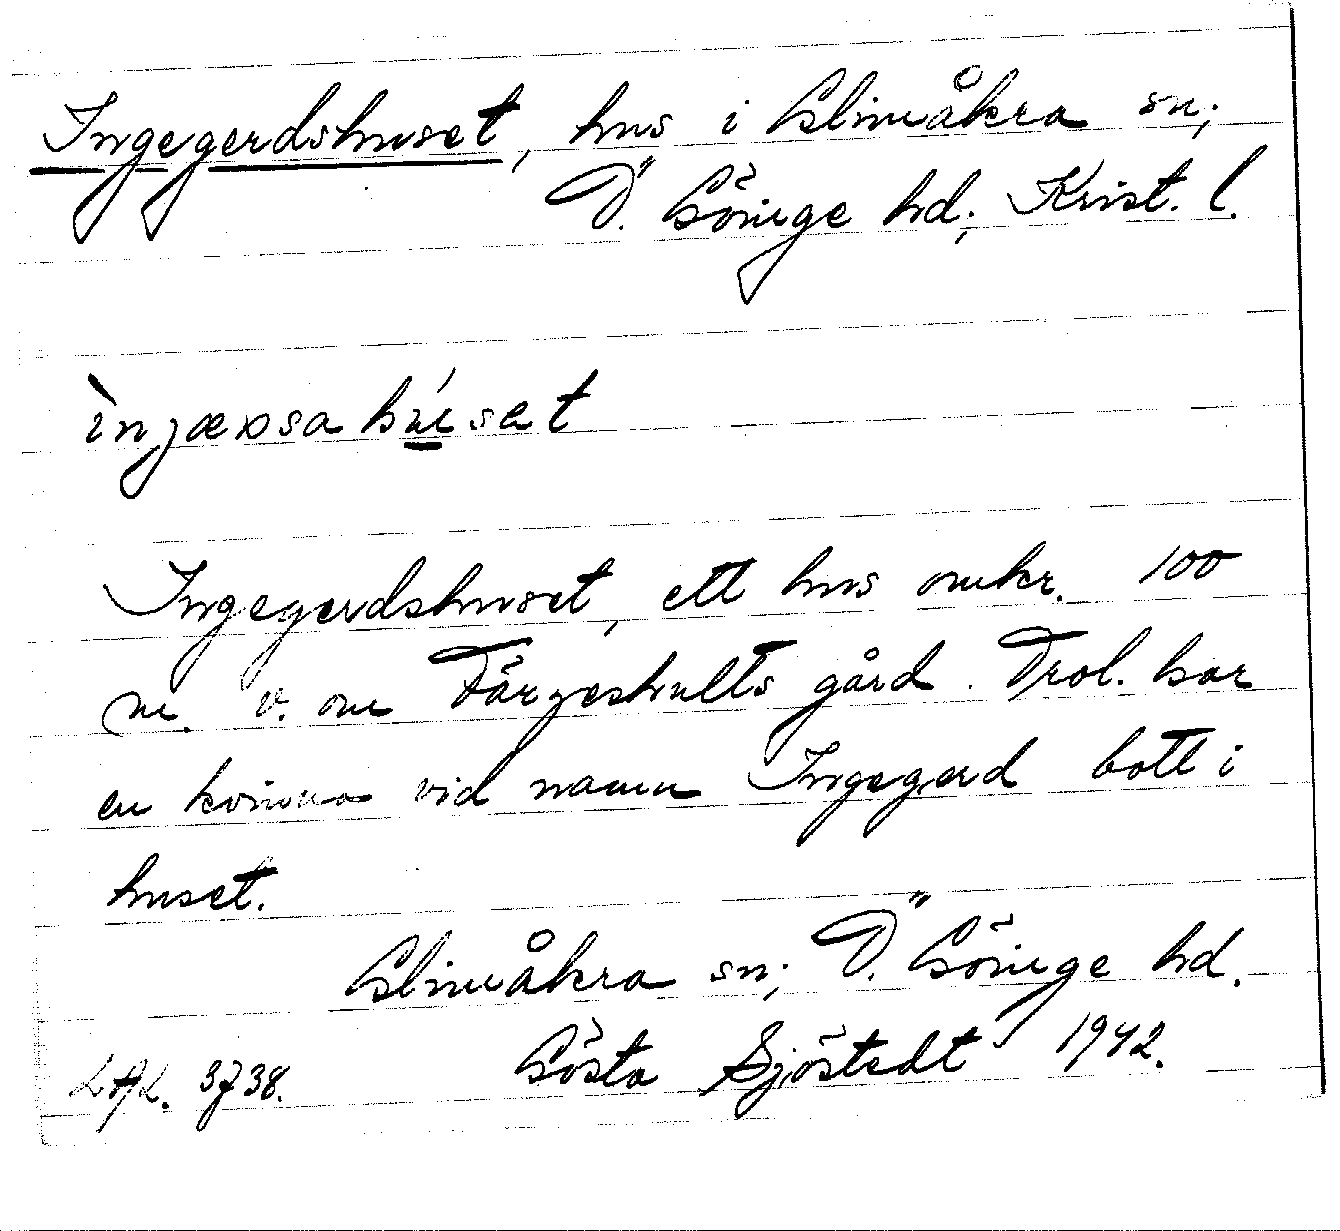 Ingegerdshuset, hus i Glimåkra sn;
Ö. Göinge hd; Krist. l.
Ingegerdshuset, ett hus omkr. 100
m. v. om Färgeshults gård. Trol. har
en kvinna vid namn Ingegerd bott i
huset.
Glimåkra sn; Ö. Göinge hd.
Gösta Sjöstedt 1942.
LAL. 3738.